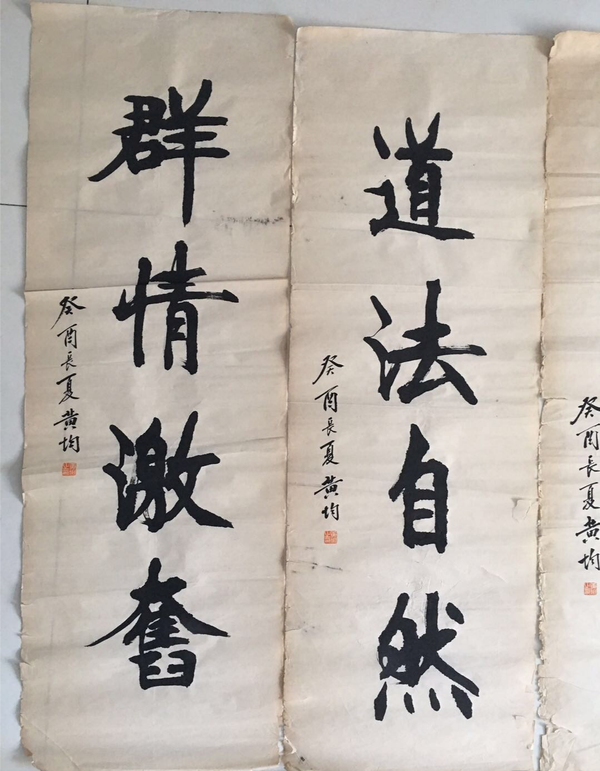 癸酉長夏黄均
道法自然
癸酉長夏黄均
群情激奮
癸酉長夏黄均